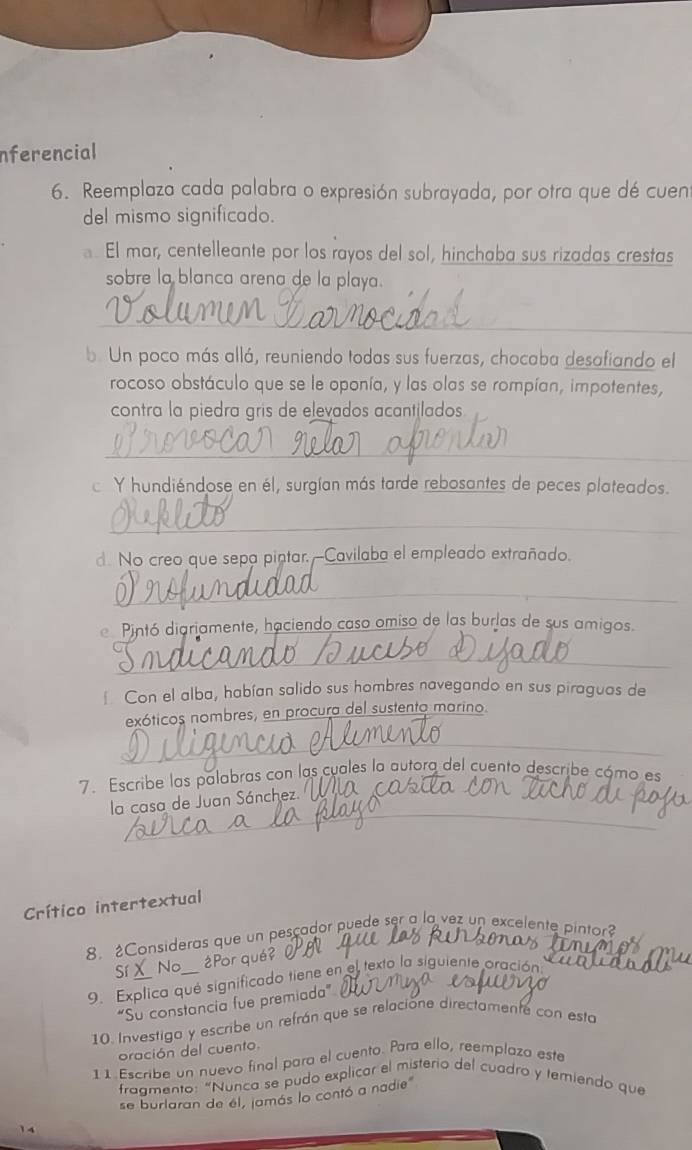 nferencial
6. Reemplaza cada palabra o expresión subrayada, por otra que dé cuen
del mismo significado.
a. El mar, centelleante por los rayos del sol, hinchaba sus rizadas crestas
sobre la blanca arena de la playa.
Volumen
b. Un poco más allá, reuniendo todas sus fuerzas, chocaba desafiando el
rocoso obstáculo que se le oponía, y las olas se rompían, impotentes,
contra la piedra gris de elevados acantilados
Provocar retar afrontar
c. Y hundiéndose en él, surgían más tarde rebosantes de peces plateados.
Repleto
d. No creo que sepa pintar. —Cavilaba el empleado extrañado.
Profundidad
e. Pintó diariamente, haciendo caso omiso de las burlas de sus amigos.
Indicando
f. Con el alba, habían salido sus hombres navegando en sus piraguas de
exóticos nombres, en procura del sustento marino.
Diligencia alimento
7. Escribe las palabras con las cuales la autora del cuento describe cómo es
la casa de Juan Sánchez. Una casita con techo de paja
serca a la playa
Crítico intertextual
8. ¿Consideras que un pescador puede ser a la vez un excelente pintor?
Sí X No__ ¿Por qué? Por que las personas tenemos
9. Explica qué significado tiene en el texto la siguiente oración:
"Su constancia fue premiada". esfuerzo
10. Investiga y escribe un refrán que se relacione directamente con esta
oración del cuento.
11. Escribe un nuevo final para el cuento. Para ello, reemplaza este
fragmento: "Nunca se pudo explicar el misterio del cuadro y temiendo que
se burlaran de él, jamás lo contó a nadie"
14